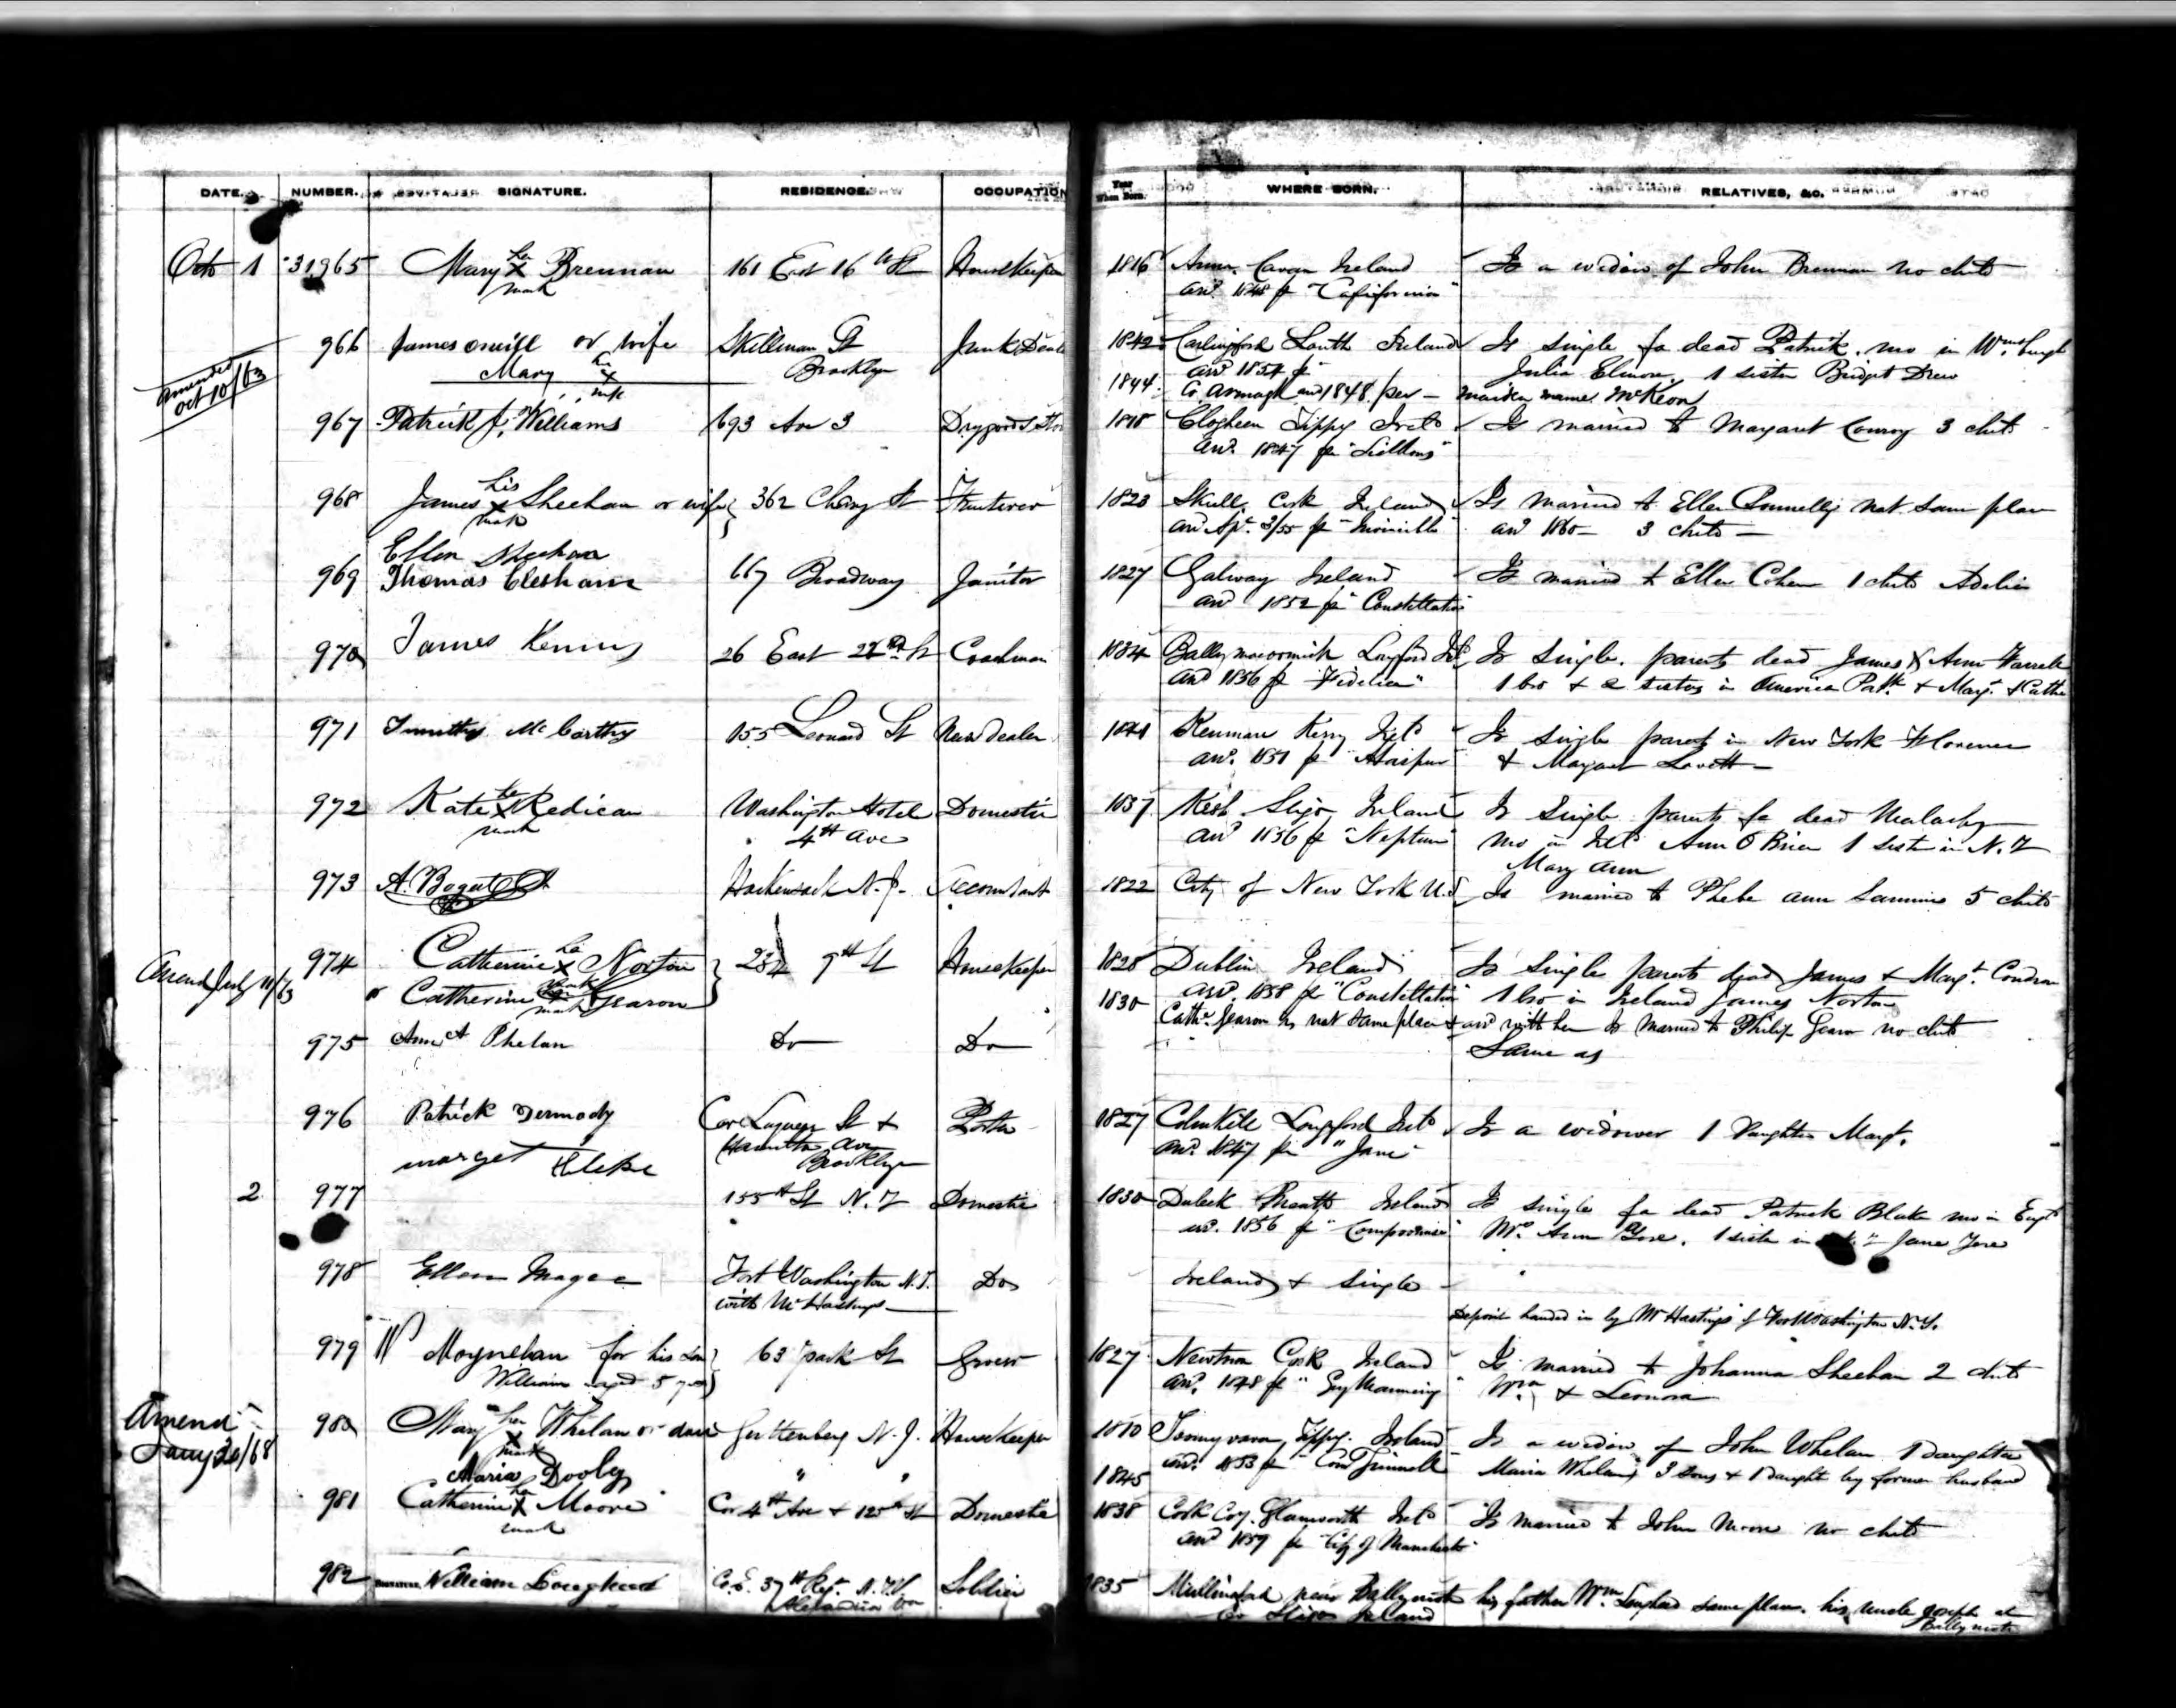 DATE. NUMBER. SIGNATURE. RESIDENCE. OCCUPATION Year When Born. WHERE BORN. RELATIVES, &C.
Octo 1 31965 Mary her X mark Brennan 161 East 16th St Housekeeper 1816 Cavan Ireland Is a widow of John Brennan no child
arrd 1848 pr "California"
966 James oneill or wife Skillman St Junk Deal 1842 Carlingford Louth Ireland Is single fa dead Patrick. mo in Wmsburgh
Mary her X mk Brooklyn arrd 1854 pr Julia Elinor, 1 sister Bridget Drew
Amended Oct 10/63 1844 Co Armagh arrd 1848 per — maiden name McKeon
967 Patrick J. Williams 693 Ave 3 Drygoods Sto 1818 Clogheen Tippy Ireld Is married to Margaret Conroy 3 childr
arrd 1847 pr
968 James his X mark Sheehan or wife 362 Cherry St 1823 Skull Cork Ireland Is married to Ellen Donnelly nat same place
arrd Apr 3/55 pr arrd 1860 — 3 childr —
Ellen Sheehan
969 Thomas Clesham 667 Broadway Janitor 1827 Galway Ireland Is married to Ellen Cohen 1 child Adelia
arrd 1852 pr "Constellation
970 James Kenny 26 East 22nd St Coachman 1834 Ballymacormick Longford Ird Is single. parents dead James & Ann Farrell
arrd 1856 pr "Fidelia" 1 bro & 2 sisters in America Patk & Margt & Cathe
971 Timothy McCarthy 155 Leonard St News dealer 1841 Kenmare Kerry Ireld Is single parents in New York Florence
arrd 1851 pr & Margaret Lovett —
972 Kate her X mark Redican Washington Hotel Domestic 1837 Kesh Sligo Ireland Is single parents fa dead Malachy
4th Ave arrd 1856 pr "Neptune" mo in Ireld Ann O Brien 1 sister in N.Y
Mary Ann
973 A. Bogert Hackensack N.J. Accountant 1822 City of New York U.S Is married to Phebe Ann 5 childr
974 Catherine her X mark Norton 234 9th St Housekeeper 1828 Dublin Ireland Is single parents dead James & Margt Condron
Amend July 11/63 or Catherine her X mark Gearon 1830 arrd 1858 pr "Constellation" 1 bro in Ireland James Norton
Cathe Gearon is nat same place & arrd with her Is married to Philip Gearon no child
975 Ann A Phelan Do Do Same as
976 Patrick Dermody Cor Luquer St & Porter 1827 Colmkill Longford Ireld Is a widower 1 Daughter Margt.
Hamilton Ave arrd 1847 pr "Jane"
Brooklyn
marget Blake
2 977 155th St N.Y Domestic 1830 Duleek Meath Ireland Is single fa dead Patrick Blake mo in Engd
arrd 1856 pr "Compromise" Ann 1 sister in Jane
978 Ellen Magee Fort Washington N.Y. Do Ireland & single
with Mr Hastings —
Deposit handed in by Mr Hastings of Fort Washington N.Y.
979 W Moynehan for his son 63 park St Grocer 1827 Newtown Cork Ireland Is married to Johanna Sheehan 2 childr
William aged 5 years arrd 1848 pr "Guy Mannering" Wm & Leonora
Amend Jany 20/68 980 Mary her X mark Whelan or daur Guttenberg N.J. Housekeeper 1810 Toomyvara Tippy. Ireland Is a widow of John Whelan 1 daughter
Maria Dooley " " 1845 arrd 1853 pr Grinnell Maria Whelan 3 sons & 1 daught by former husband
981 Catherine her X mark Moore Cor 4th Ave & 125th St Domestic 1838 Cork Coy. Glanworth Ireld Is married to John Moore no child
arrd 1859 pr "City of Manchester"
982 William Loughead Co. E. 37th Regt. N.Y.V. Soldier 1835 near Ballymote his father Wm Loughead same place. his uncle Joseph at
Alexandria Va Co Sligo Ireland Ballymote